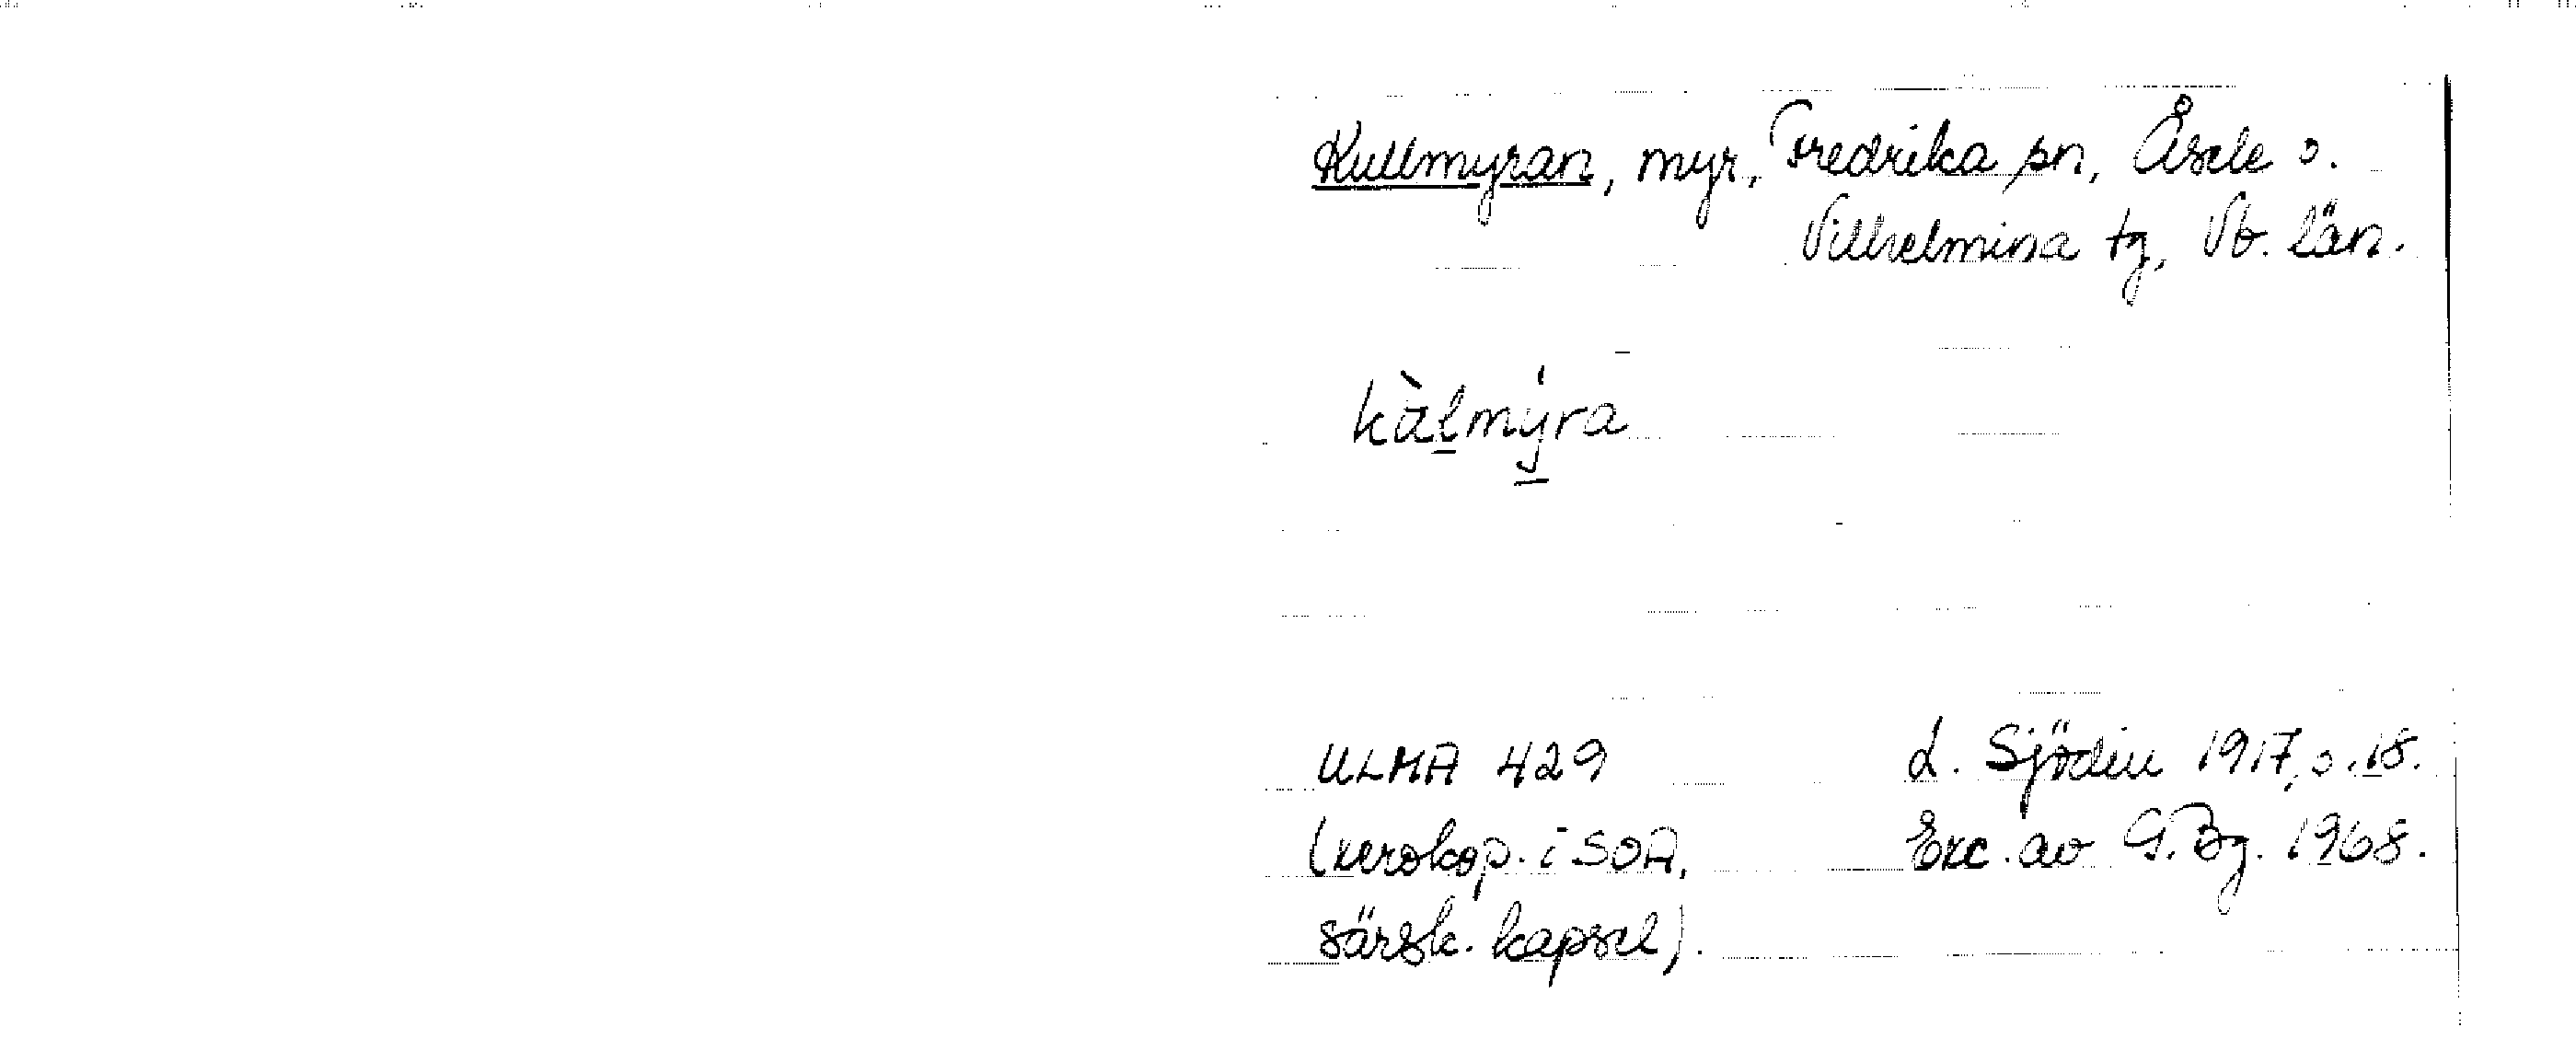 Kullmyran, myr, Fredrika sn, Åsele o.
Vilhelmina tg, Vb. län.
kàlmýra
ULMA 429
(xerokop. i SOA,
särsk. kapsel).
L. Sjödin 1917, s. 18.
Exc. av G. Bg. 1968.